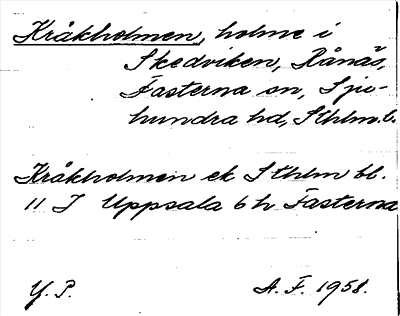 Kråkholmen, holme i
Skedviken, Rånäs,
Fasterna sn, Sju-
hundra hd, Sthlm l.
Kråkholmen ek Sthlm bl.
11 I Uppsala 6 h Fasterna
Y. P. A. F. 1958.